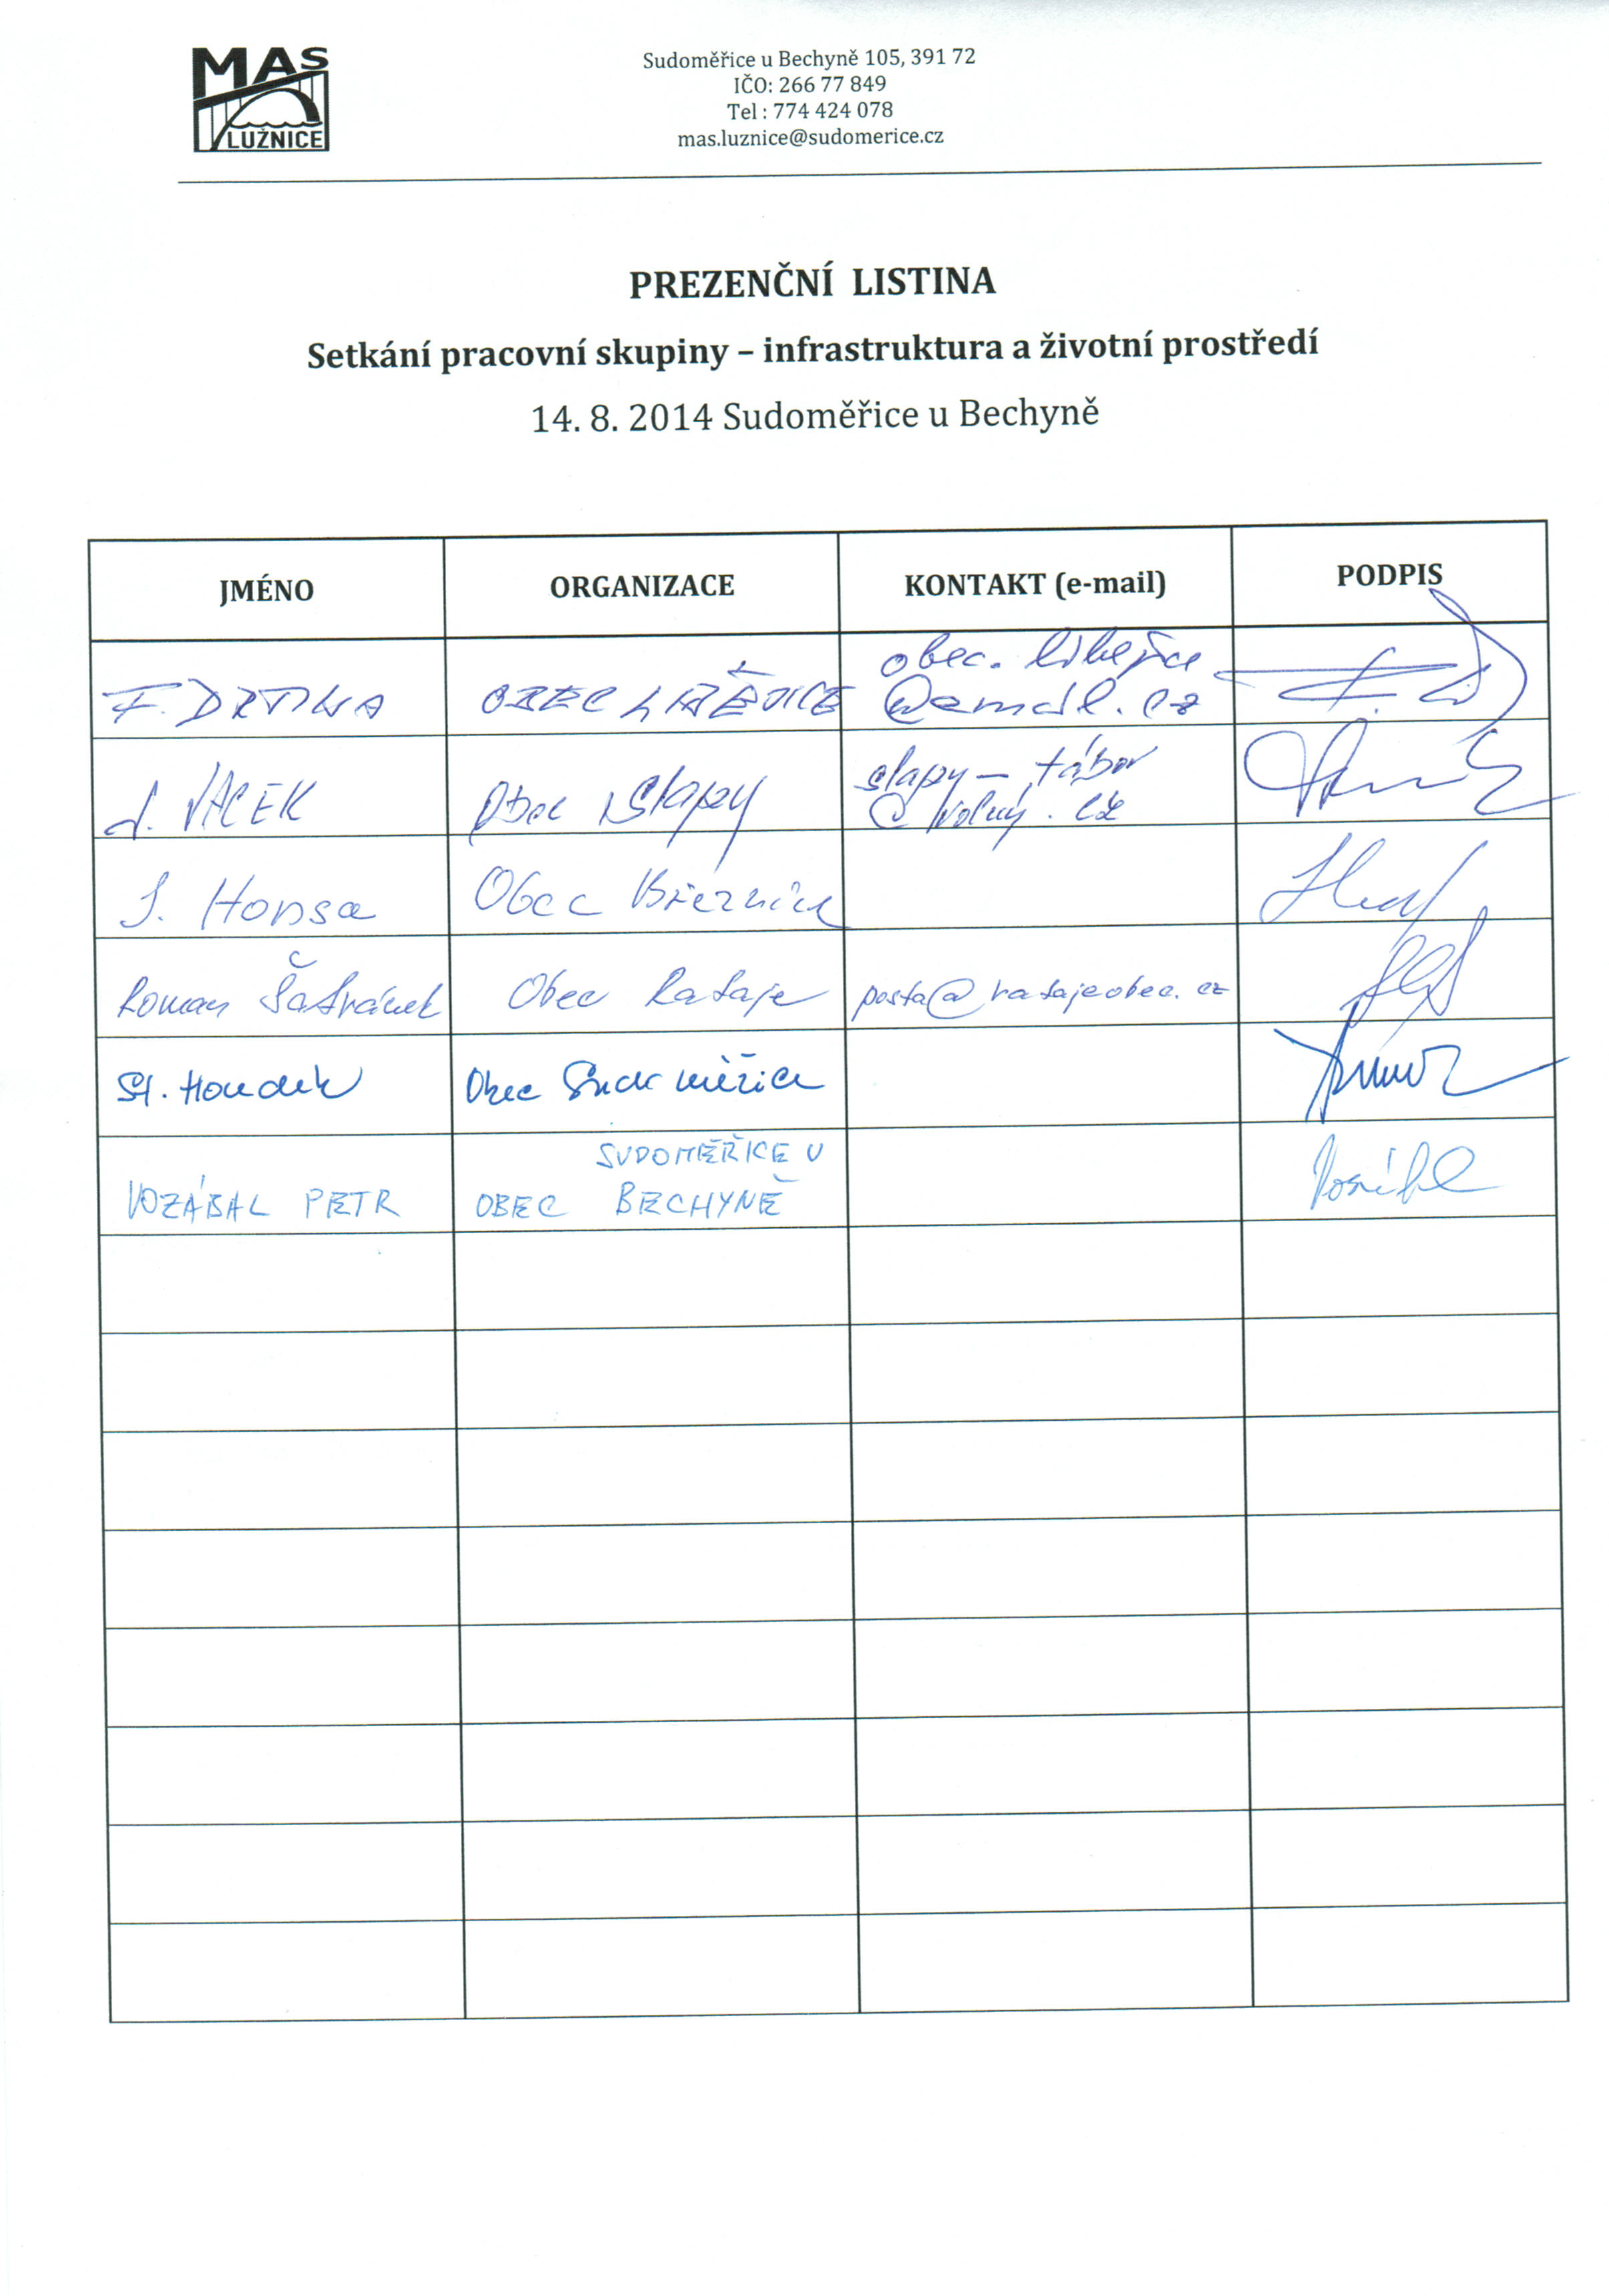 MAS
LUŽNICE
Sudoměřice u Bechyně 105, 391 72
IČO: 266 77 849
Tel : 774 424 078
mas.luznice@sudomerice.cz
PREZENČNÍ LISTINA
Setkání pracovní skupiny – infrastruktura a životní prostředí
14. 8. 2014 Sudoměřice u Bechyně
JMÉNO ORGANIZACE KONTAKT (e-mail) PODPIS
obec.
F. DRTINA OBEC @email.cz
slapy – tábor
VACEK Obec Slapy @volný.cz
Honsa Obec Březnice
Roman Šatránek Obec Rataje posta@ratajeobec.cz
St. Houdek Obec Sudoměřice
SUDOMĚŘICE U
VOZÁBAL PETR OBEC BECHYNĚ